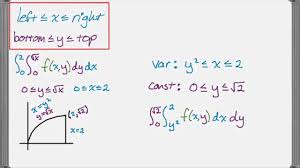 left ≤ x ≤ right
bottom ≤ y ≤ top
∫₀² ∫₀^√x f(x,y) dy dx
0 ≤ y ≤ √x 0 ≤ x ≤ 2
x = y²
y = √x
(2, √2)
x = 2
var: y² ≤ x ≤ 2
const: 0 ≤ y ≤ √2
∫₀^√2 ∫_y²^2 f(x,y) dx dy